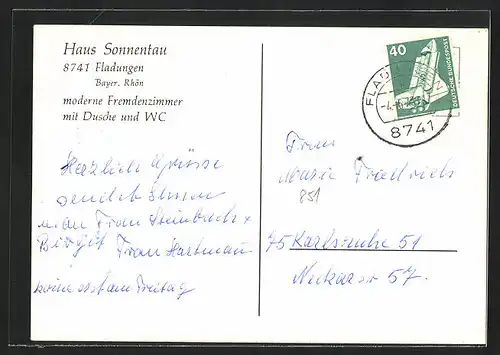 Haus Sonnentau
8741 Fladungen
Bayer. Rhön
moderne Fremdenzimmer
mit Dusche und WC
Herzlich Grüsse
sendet Ihnen
Frau Steinbach +
Birgit Frau Hartmann
komme erst am Freitag
40
DEUTSCHE BUNDESPOST
FLADUNGEN
8741
Frau
Maria Friedrich
851
75 Karlsruhe 51
Neckarstr 57.